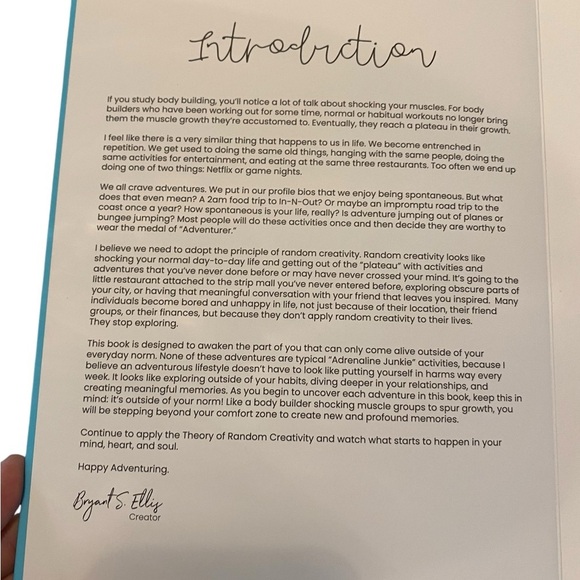 Introduction
If you study body building, you'll notice a lot of talk about shocking your muscles. For body
builders who have been working out for some time, normal or habitual workouts no longer bring
them the muscle growth they're accustomed to. Eventually, they reach a plateau in their growth.
I feel like there is a very similar thing that happens to us in life. We become entrenched in
repetition. We get used to doing the same old things, hanging with the same people, doing the
same activities for entertainment, and eating at the same three restaurants. Too often we end up
doing one of two things: Netflix or game nights.
We all crave adventures. We put in our profile bios that we enjoy being spontaneous. But what
does that even mean? A 2am food trip to In-N-Out? Or maybe an impromptu road trip to the
coast once a year? How spontaneous is your life, really? Is adventure jumping out of planes or
bungee jumping? Most people will do these activities once and then decide they are worthy to
wear the medal of "Adventurer."
I believe we need to adopt the principle of random creativity. Random creativity looks like
shocking your normal day-to-day life and getting out of the "plateau" with activities and
adventures that you've never done before or may have never crossed your mind. It's going to the
little restaurant attached to the strip mall you've never entered before, exploring obscure parts of
your city, or having that meaningful conversation with your friend that leaves you inspired. Many
individuals become bored and unhappy in life, not just because of their location, their friend
groups, or their finances, but because they don't apply random creativity to their lives.
They stop exploring.
This book is designed to awaken the part of you that can only come alive outside of your
everyday norm. None of these adventures are typical "Adrenaline Junkie" activities, because I
believe an adventurous lifestyle doesn't have to look like putting yourself in harms way every
week. It looks like exploring outside of your habits, diving deeper in your relationships, and
creating meaningful memories. As you begin to uncover each adventure in this book, keep this in
mind: it's outside of your norm! Like a body builder shocking muscle groups to spur growth, you
will be stepping beyond your comfort zone to create new and profound memories.
Continue to apply the Theory of Random Creativity and watch what starts to happen in your
mind, heart, and soul.
Happy Adventuring.
Bryant S. Ellis
Creator